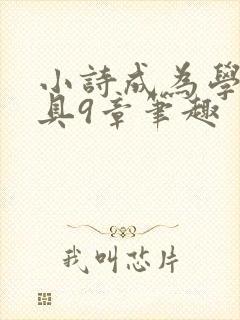 小詩成為學
具9章筆趣
我叫芯片